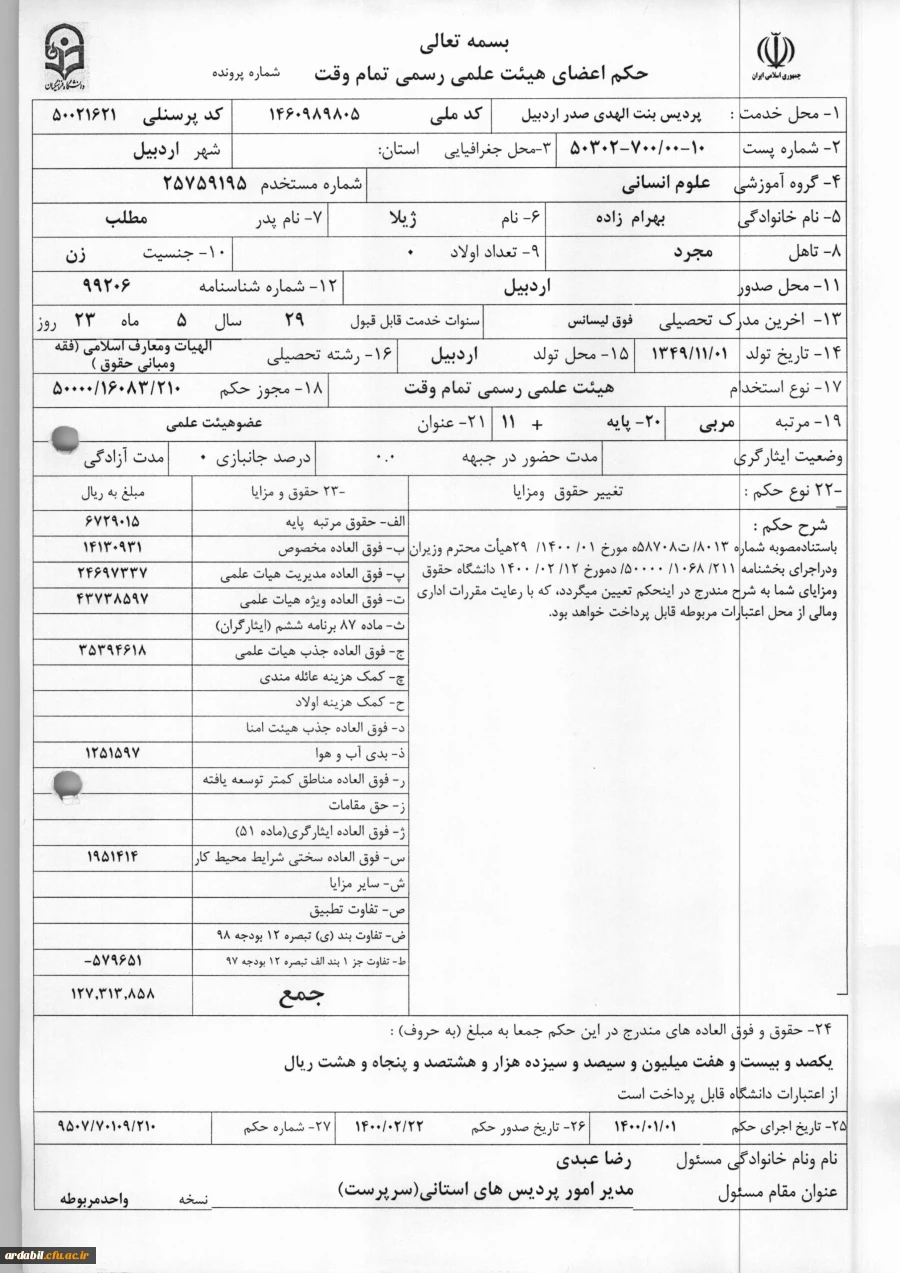 بسمه تعالی
جمهوری اسلامی ایران
حکم اعضای هیئت علمی رسمی تمام وقت شماره پرونده
۱- محل خدمت : پردیس بنت الهدی صدر اردبیل کد ملی ۱۴۶۰۹۸۹۸۰۵ کد پرسنلی ۵۰۰۲۱۶۲۱
۲- شماره پست ۵۰۳۰۲-۷۰۰/۰۰-۱۰ ۳-محل جغرافیایی استان: شهر اردبیل
۴- گروه آموزشی علوم انسانی شماره مستخدم ۲۵۷۵۹۱۹۵
۵- نام خانوادگی بهرام زاده ۶- نام ژیلا ۷- نام پدر مطلب
۸- تاهل مجرد ۹- تعداد اولاد ۰ ۱۰- جنسیت زن
۱۱- محل صدور اردبیل ۱۲- شماره شناسنامه ۹۹۲۰۶
۱۳- اخرین مدرک تحصیلی فوق لیسانس سنوات خدمت قابل قبول ۲۹ سال ۵ ماه ۲۳ روز
۱۴- تاریخ تولد ۱۳۴۹/۱۱/۰۱ ۱۵- محل تولد اردبیل ۱۶- رشته تحصیلی الهیات ومعارف اسلامی (فقه
ومبانی حقوق )
۱۷- نوع استخدام هیئت علمی رسمی تمام وقت ۱۸- مجوز حکم ۵۰۰۰۰/۱۶۰۸۳/۲۱۰
۱۹- مرتبه مربی ۲۰- پایه + ۱۱ ۲۱- عنوان عضوهیئت علمی
وضعیت ایثارگری مدت حضور در جبهه ۰.۰ درصد جانبازی ۰ مدت آزادگی
-۲۲ نوع حکم : تغییر حقوق ومزایا -۲۳ حقوق و مزایا مبلغ به ریال
شرح حکم :
باستنادمصوبه شماره ۸۰۱۳/ ت۵۸۷۰۸ه مورخ ۰۱/ ۱۴۰۰/ ۲۹هیأت محترم وزیران
ودراجرای بخشنامه ۲۱۱/ ۱۰۶۸/ ۵۰۰۰۰/ دمورخ ۱۲/ ۰۲/ ۱۴۰۰ دانشگاه حقوق
ومزایای شما به شرح مندرج در اینحکم تعیین میگردد، که با رعایت مقررات اداری
ومالی از محل اعتبارات مربوطه قابل پرداخت خواهد بود.
الف- حقوق مرتبه پایه ۶۷۲۹۰۱۵
ب- فوق العاده مخصوص ۱۴۱۳۰۹۳۱
پ- فوق العاده مدیریت هیات علمی ۲۴۶۹۷۳۳۷
ت- فوق العاده ویژه هیات علمی ۴۳۷۳۸۵۹۷
ث- ماده ۸۷ برنامه ششم (ایثارگران)
ج- فوق العاده جذب هیات علمی ۳۵۳۹۴۶۱۸
چ- کمک هزینه عائله مندی
ح- کمک هزینه اولاد
د- فوق العاده جذب هیئت امنا
ذ- بدی آب و هوا ۱۲۵۱۵۹۷
ر- فوق العاده مناطق کمتر توسعه یافته
ز- حق مقامات
ژ- فوق العاده ایثارگری(ماده ۵۱)
س- فوق العاده سختی شرایط محیط کار ۱۹۵۱۴۱۴
ش- سایر مزایا
ص- تفاوت تطبیق
ض- تفاوت بند (ی) تبصره ۱۲ بودجه ۹۸
ط- تفاوت جز ۱ بند الف تبصره ۱۲ بودجه ۹۷ ۵۷۹۶۵۱-
جمع ۱۲۷,۳۱۳,۸۵۸
۲۴- حقوق و فوق العاده های مندرج در این حکم جمعا به مبلغ (به حروف) :
یکصد و بیست و هفت میلیون و سیصد و سیزده هزار و هشتصد و پنجاه و هشت ریال
از اعتبارات دانشگاه قابل پرداخت است
۲۵- تاریخ اجرای حکم ۱۴۰۰/۰۱/۰۱ ۲۶- تاریخ صدور حکم ۱۴۰۰/۰۲/۲۲ ۲۷- شماره حکم ۹۵۰۷/۷۰۱۰۹/۲۱۰
نام ونام خانوادگی مسئول رضا عبدی
عنوان مقام مسئول مدیر امور پردیس های استانی(سرپرست) نسخه واحدمربوطه
ardabil.cfu.ac.ir